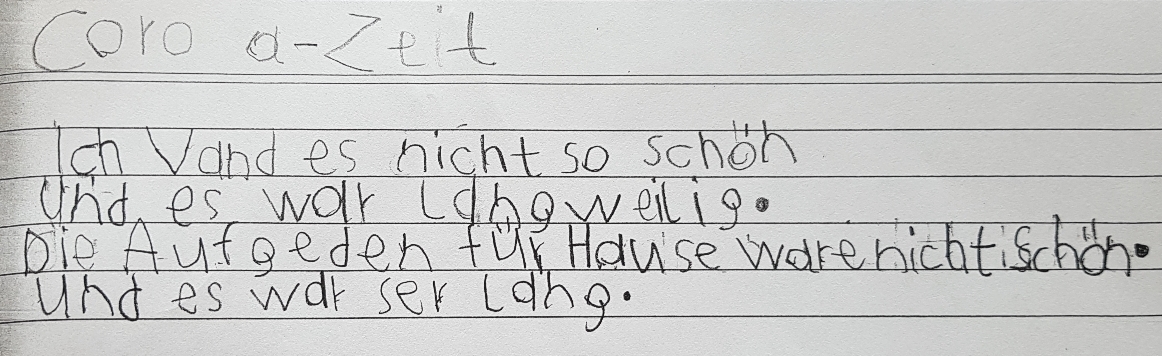 Coro a-Zeit
Ich Vand es nicht so schön
Und es war Langweilig.
Die Aufgeden für Hause ware nicht schön.
Und es war ser Lang.